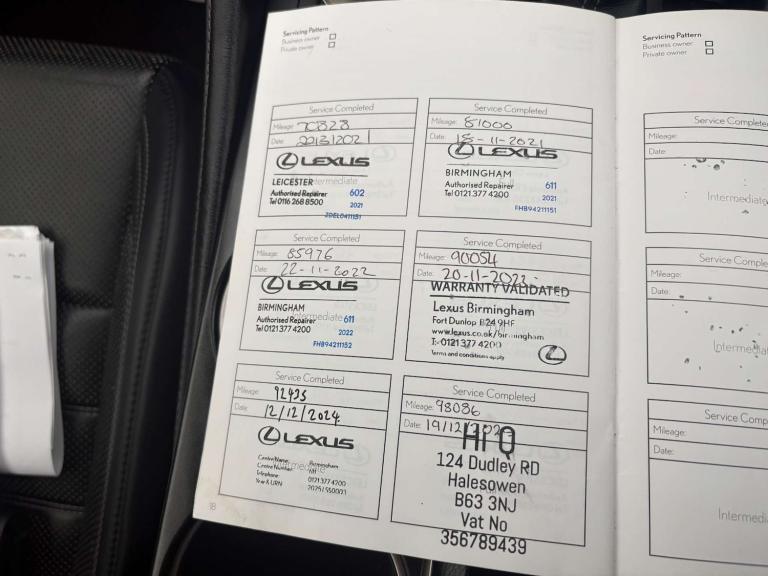 Servicing Pattern
Business owner
Private owner
Service Completed
Mileage: 70828
Date:
LEXUS
LEICESTER
Intermediate
Authorised Repairer 602
Tel 0116 268 8500 2021
Service Completed
Mileage: 81000
Date: 18-11-2021
LEXUS
BIRMINGHAM
Authorised Repairer 611
Tel 0121 377 4200 2021
FHB94211151
Service Completed
Mileage: 85976
Date: 22-11-2022
LEXUS
BIRMINGHAM
Intermediate
Authorised Repairer 611
Tel 0121 377 4200 2022
FHB94211152
Service Completed
Mileage: 90054
Date:
WARRANTY VALIDATED
Lexus Birmingham
Fort Dunlop B24 9HF
www.lexus.co.uk/birmingham
T: 0121 377 4200
Terms and conditions apply
Service Completed
Mileage: 92435
Date: 12/12/2024
LEXUS
Centre Name: Birmingham
Centre Number:
Intermediate
Telephone 0121 377 4200
Year & URN
Service Completed
Mileage: 98086
Date: 19/12/
Hi Q
124 Dudley RD
Halesowen
B63 3NJ
Vat No
356789439
18
Servicing Pattern
Business owner
Private owner
Service Complete
Mileage:
Date:
Intermediate
Service Comple
Mileage:
Date:
Intermediat
Service Comp
Mileage:
Date:
Intermedi